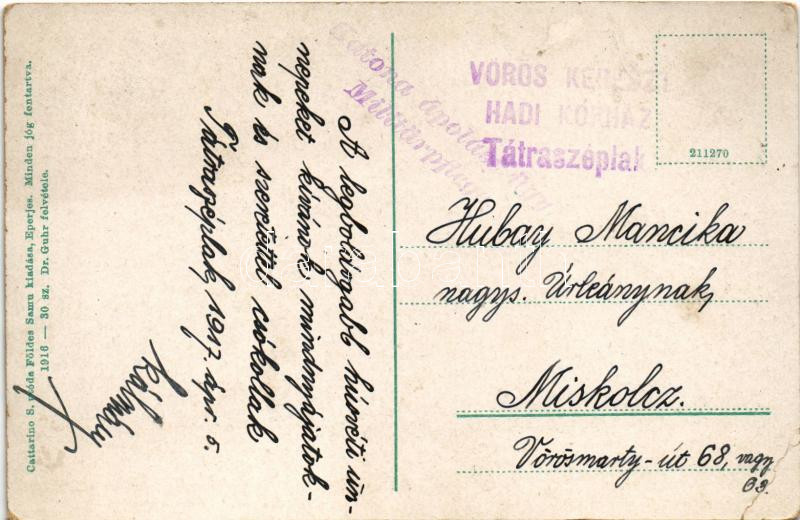 Cattarino S. utóda Földes Samu kiadása, Eperjes. Minden jóg fentartva.
1916 — 30 sz. Dr. Guhr felvétele.
A legboldogabb húsvéti ün-
nepeket kívánok mindnyájatok-
nak és szeretettel csókollak
Tátraszéplak, 1917. ápr. 5.
Kálmán
Katona ápolási
Militärpflege
VÖRÖS KERESZT
HADI KÓRHÁZ
Tátraszéplak
211270
Hubay Mancika
nagys. Úrleánynak,
Miskolcz.
Vörösmarty-út 68, vagy
63.